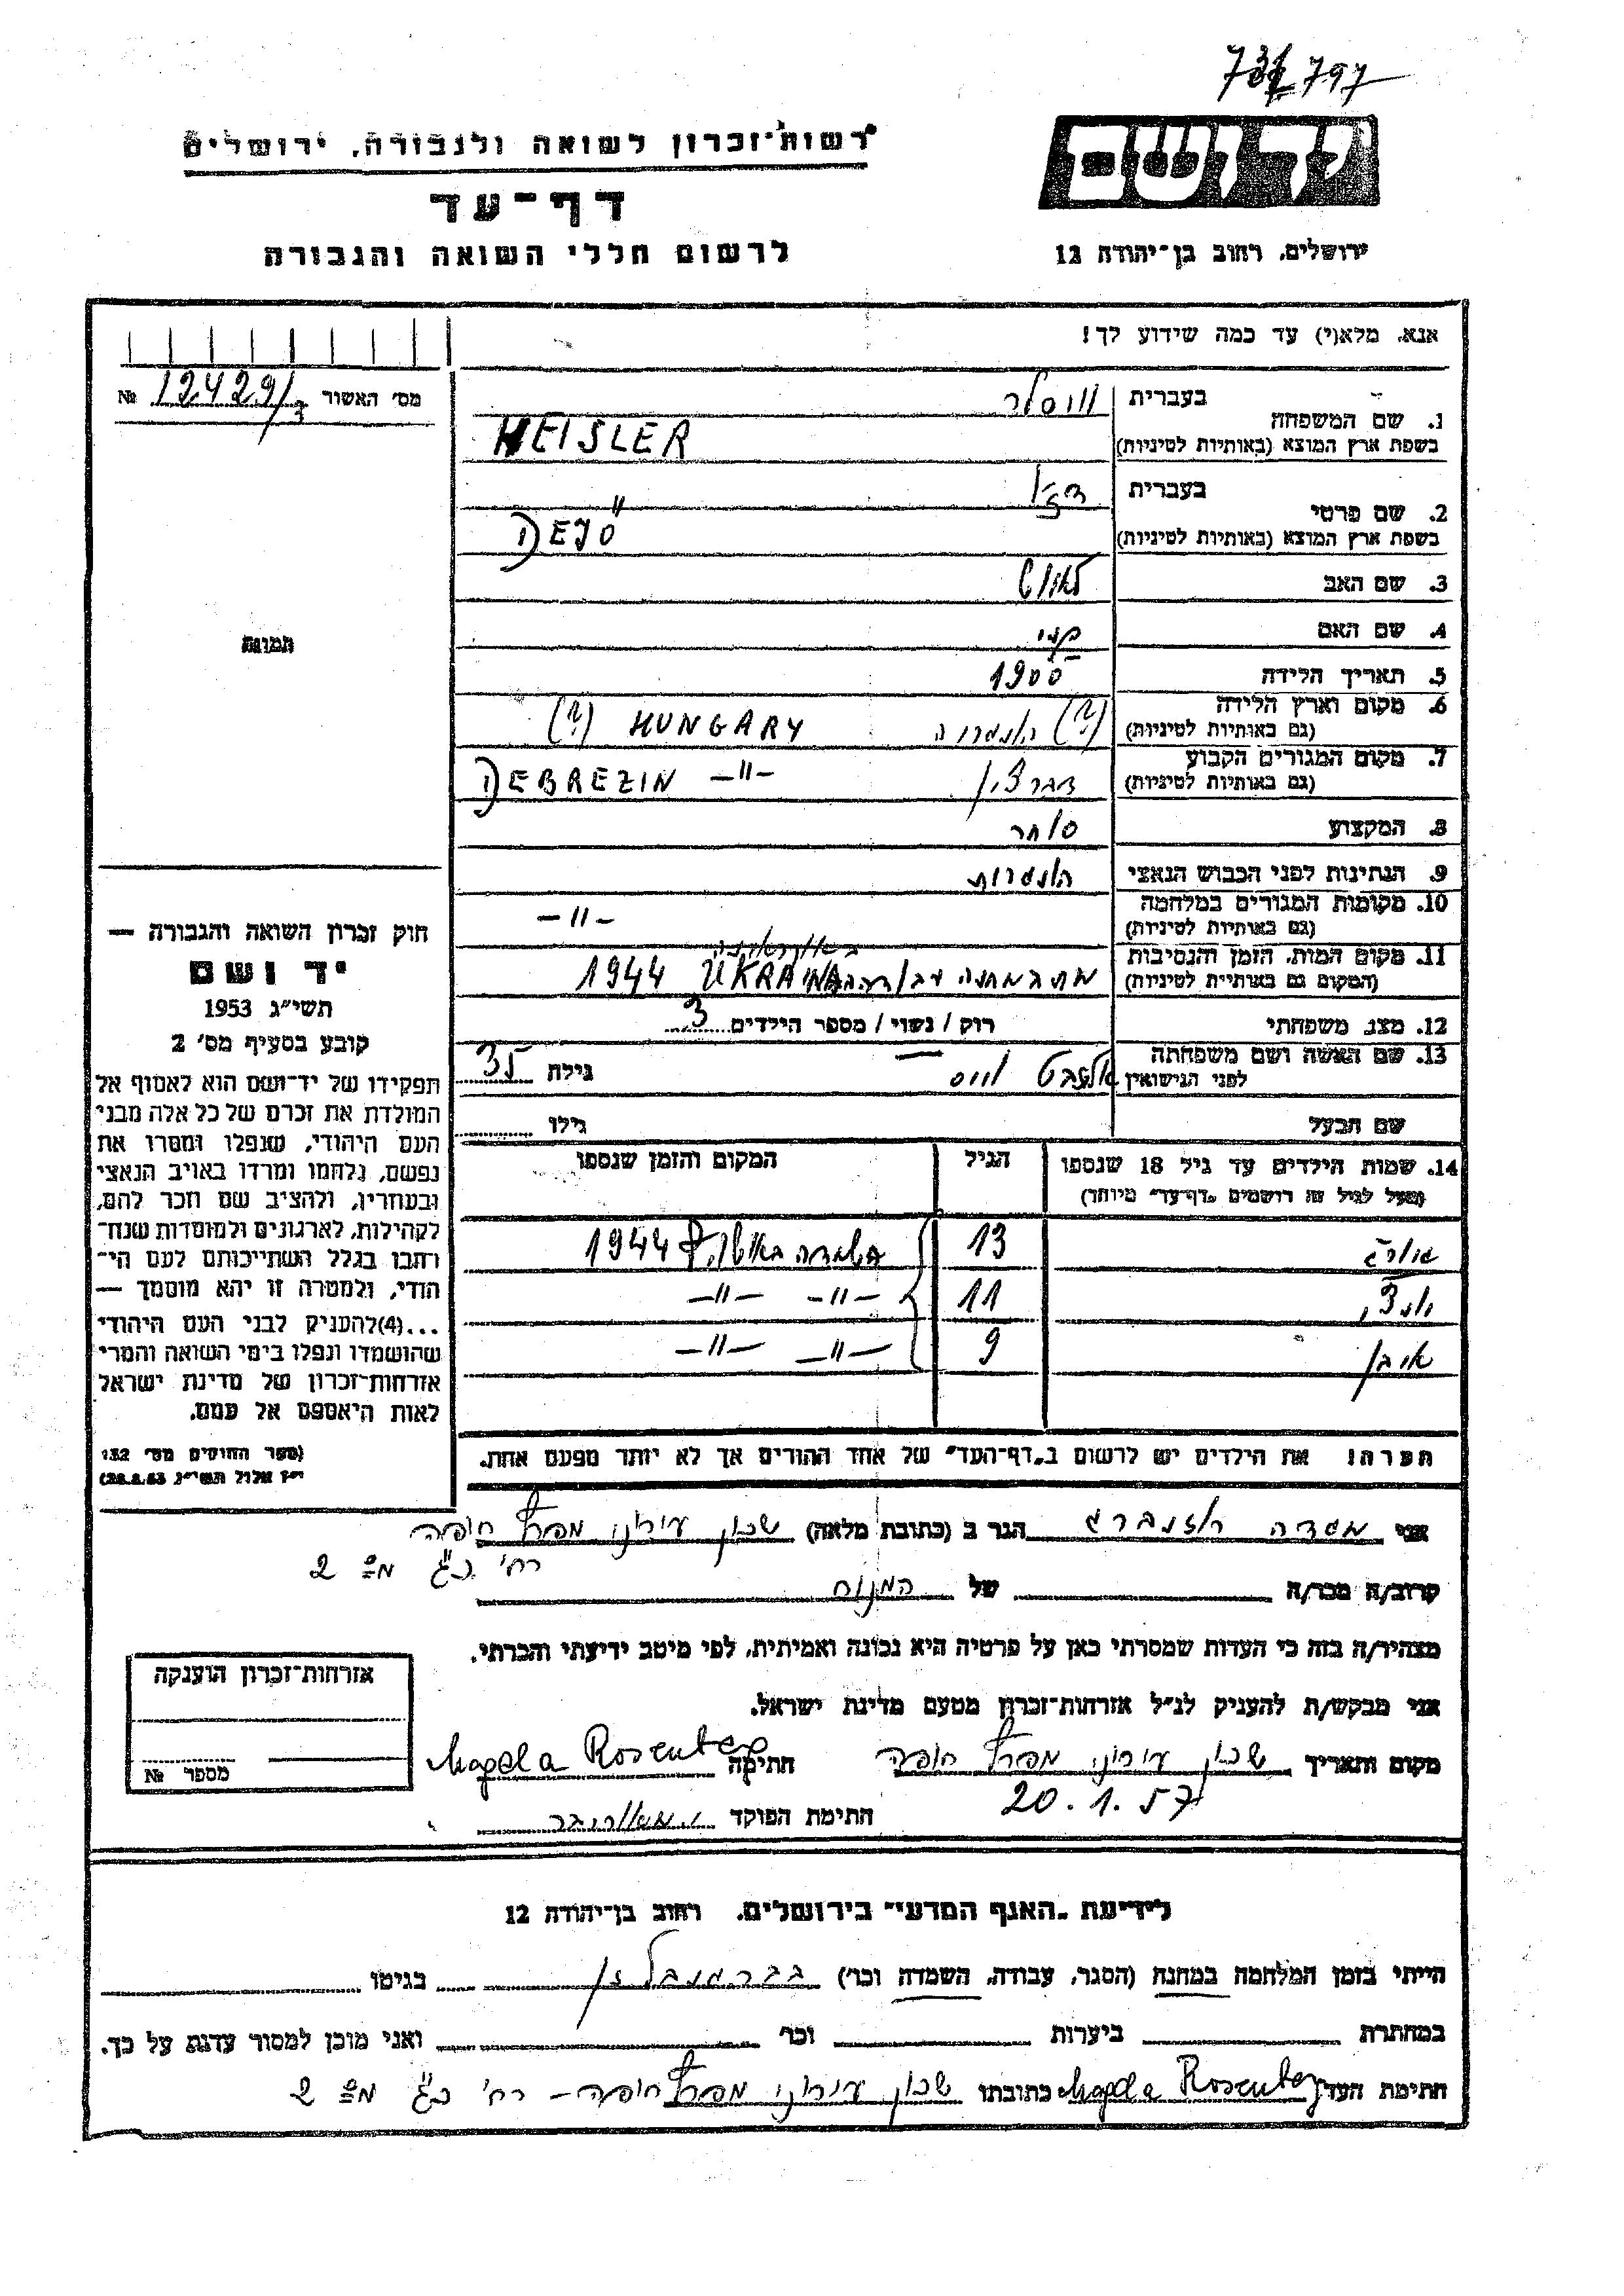 731797
רשות־זכרון לשואה ולגבורה, ירושלים
דף־עד
לרשום חללי השואה והגבורה
יד ושם
ירושלים, רחוב בן־יהודה 12
אנא, מלא(י) עד כמה שידוע לך!
מס' האשור 12429/3 №
1. שם המשפחה
בעברית
בשפת ארץ המוצא (באותיות לטיניות) HEISLER
2. שם פרטי
בעברית
בשפת ארץ המוצא (באותיות לטיניות) DEJÖ
3. שם האב לאוש
4. שם האם
5. תאריך הלידה 1900
6. מקום וארץ הלידה (?) הונגריה (?) HUNGARY
(גם באותיות לטיניות)
7. מקום המגורים הקבוע דברצין DEBREZIN —״—
(גם באותיות לטיניות)
8. המקצוע סוחר
9. הנתינות לפני הכבוש הנאצי הונגרית
10. מקומות המגורים במלחמה —״—
(גם באותיות לטיניות)
11. מקום המות, הזמן והנסיבות מת במחנה עבודה באוקראינה UKRAINA 1944
(המקום גם באותיות לטיניות)
12. מצב משפחתי רוק / נשוי / מספר הילדים 3
13. שם האשה ושם משפחתה אלזבט וויס גילה 35
לפני הנישואין
שם הבעל גילו
14. שמות הילדים עד גיל 18 שנספו הגיל המקום והזמן שנספו
(מעל לגיל זה רושמים "דף־עד" מיוחד)
13 השמדה באושוויץ 1944
11 —״— —״—
איבן 9 —״— —״—
הערה! את הילדים יש לרשום ב"דף־העד" של אחד ההורים אך לא יותר מפעם אחת.
תמונה
חוק זכרון השואה והגבורה —
יד ושם
תשי"ג 1953
קובע בסעיף מס' 2
תפקידו של יד־ושם הוא לאסוף אל
המולדת את זכרם של כל אלה מבני
העם היהודי, שנפלו ומסרו את
נפשם, נלחמו ומרדו באויב הנאצי
ובעוזריו, ולהציב שם וזכר להם,
לקהילות, לארגונים ולמוסדות שנח־
רבו בגלל השתייכותם לעם הי־
הודי, ולמטרה זו יהא מוסמך —
...(4)להעניק לבני העם היהודי
שהושמדו ונפלו בימי השואה והמרי
אזרחות־זכרון של מדינת ישראל
לאות היאספם אל עמם.
(ספר החוקים מס' 132
י"ז אלול תשי"ג 28.8.53)
אני מגדה רוזנברג הגר ב (כתובת מלאה) שכון עירוני מפרץ חיפה
רח' כ"ג מס 2
קרוב/ה מכר/ה של המנוח
מצהיר/ה בזה כי העדות שמסרתי כאן על פרטיה היא נכונה ואמיתית, לפי מיטב ידיעתי והכרתי.
אני מבקש/ת להעניק לנ"ל אזרחות־זכרון מטעם מדינת ישראל.
מקום ותאריך שכון עירוני מפרץ חיפה חתימה Magda Rosenberg
20.1.57
חתימת הפוקד
אזרחות־זכרון הוענקה
מספר №
לידיעת "האגף המדעי" בירושלים, רחוב בן־יהודה 12
הייתי בזמן המלחמה במחנה (הסגר, עבודה, השמדה וכו') בברגנבלזן בגיטו
במחתרת ביערות וכו' ואני מוכן למסור עדות על כך.
חתימת העד Magda Rosenberg כתובתו שכון עירוני מפרץ חיפה — רח' כ"ג מס 2